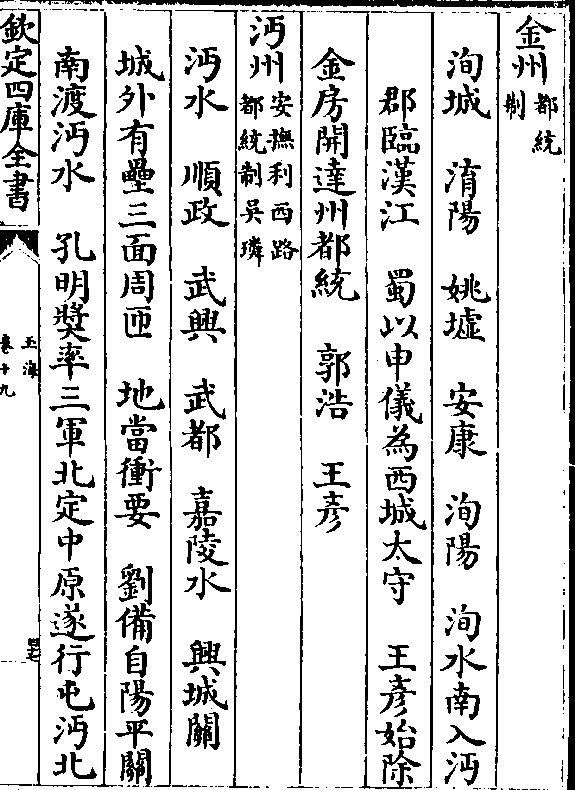 金州都統制
洵城　淯陽　姚墟　安康　洵陽　洵水南入沔
郡臨漢江　蜀以申儀為西城太守　王彥始除
金房開達州都統　郭浩　王彥
沔州安撫利西路都統制吳璘
沔水　順政　武興　武都　嘉陵水　興城關
城外有壘三面周匝　地當衝要　劉備自陽平關
南渡沔水　孔明獎率三軍北定中原遂行屯沔北
欽定四庫全書
玉海
卷十九